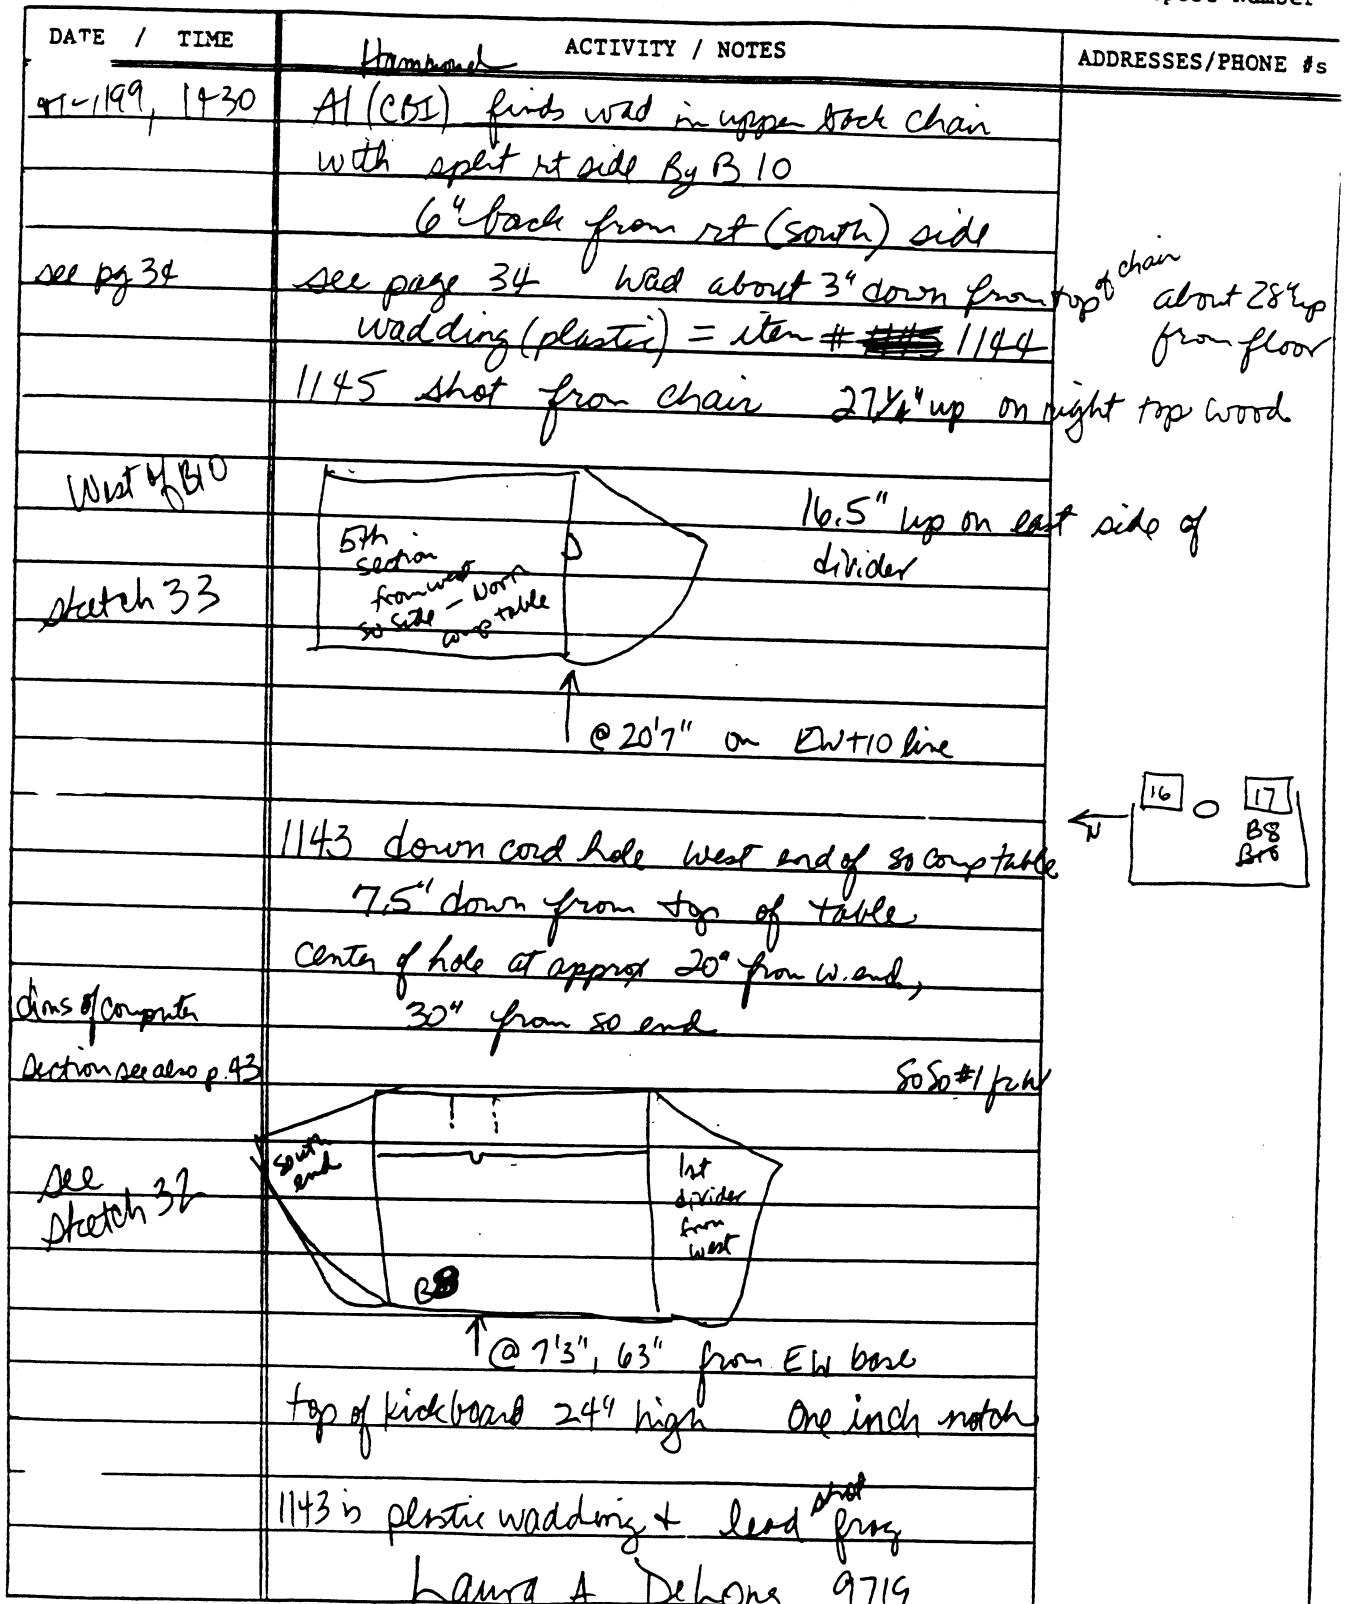 DATE / TIME
ACTIVITY / NOTES
ADDRESSES/PHONE #s
Hammond
99, 1430
Al (CBI) finds wad in upper back chair
with split rt side By B 10
6" back from rt (south) side
see pg 34
see page 34 Wad about 3" down from top of chair about 28" up
from floor
wadding (plastic) = item # 1144
1145 shot from chair 27 1/4" up on right top wood
West of B10
5th
section
from west
so side - North
comp table
16.5" up on east side of
divider
sketch 33
@ 20'7" on EW+10 line
16
17
N
B8
B10
1143 down cord hole west end of so comp table
7.5" down from top of table
Center of hole at approx 20" from w. end,
30" from so end
dims of computer
section see also p. 43
So So #1 fr W
south
end
1st
divider
from
west
see
sketch 32
B8
@ 7'3", 63" from EW base
top of kickboard 24" high One inch notch
1143 is plastic wadding + lead shot frag
Laura A 9719